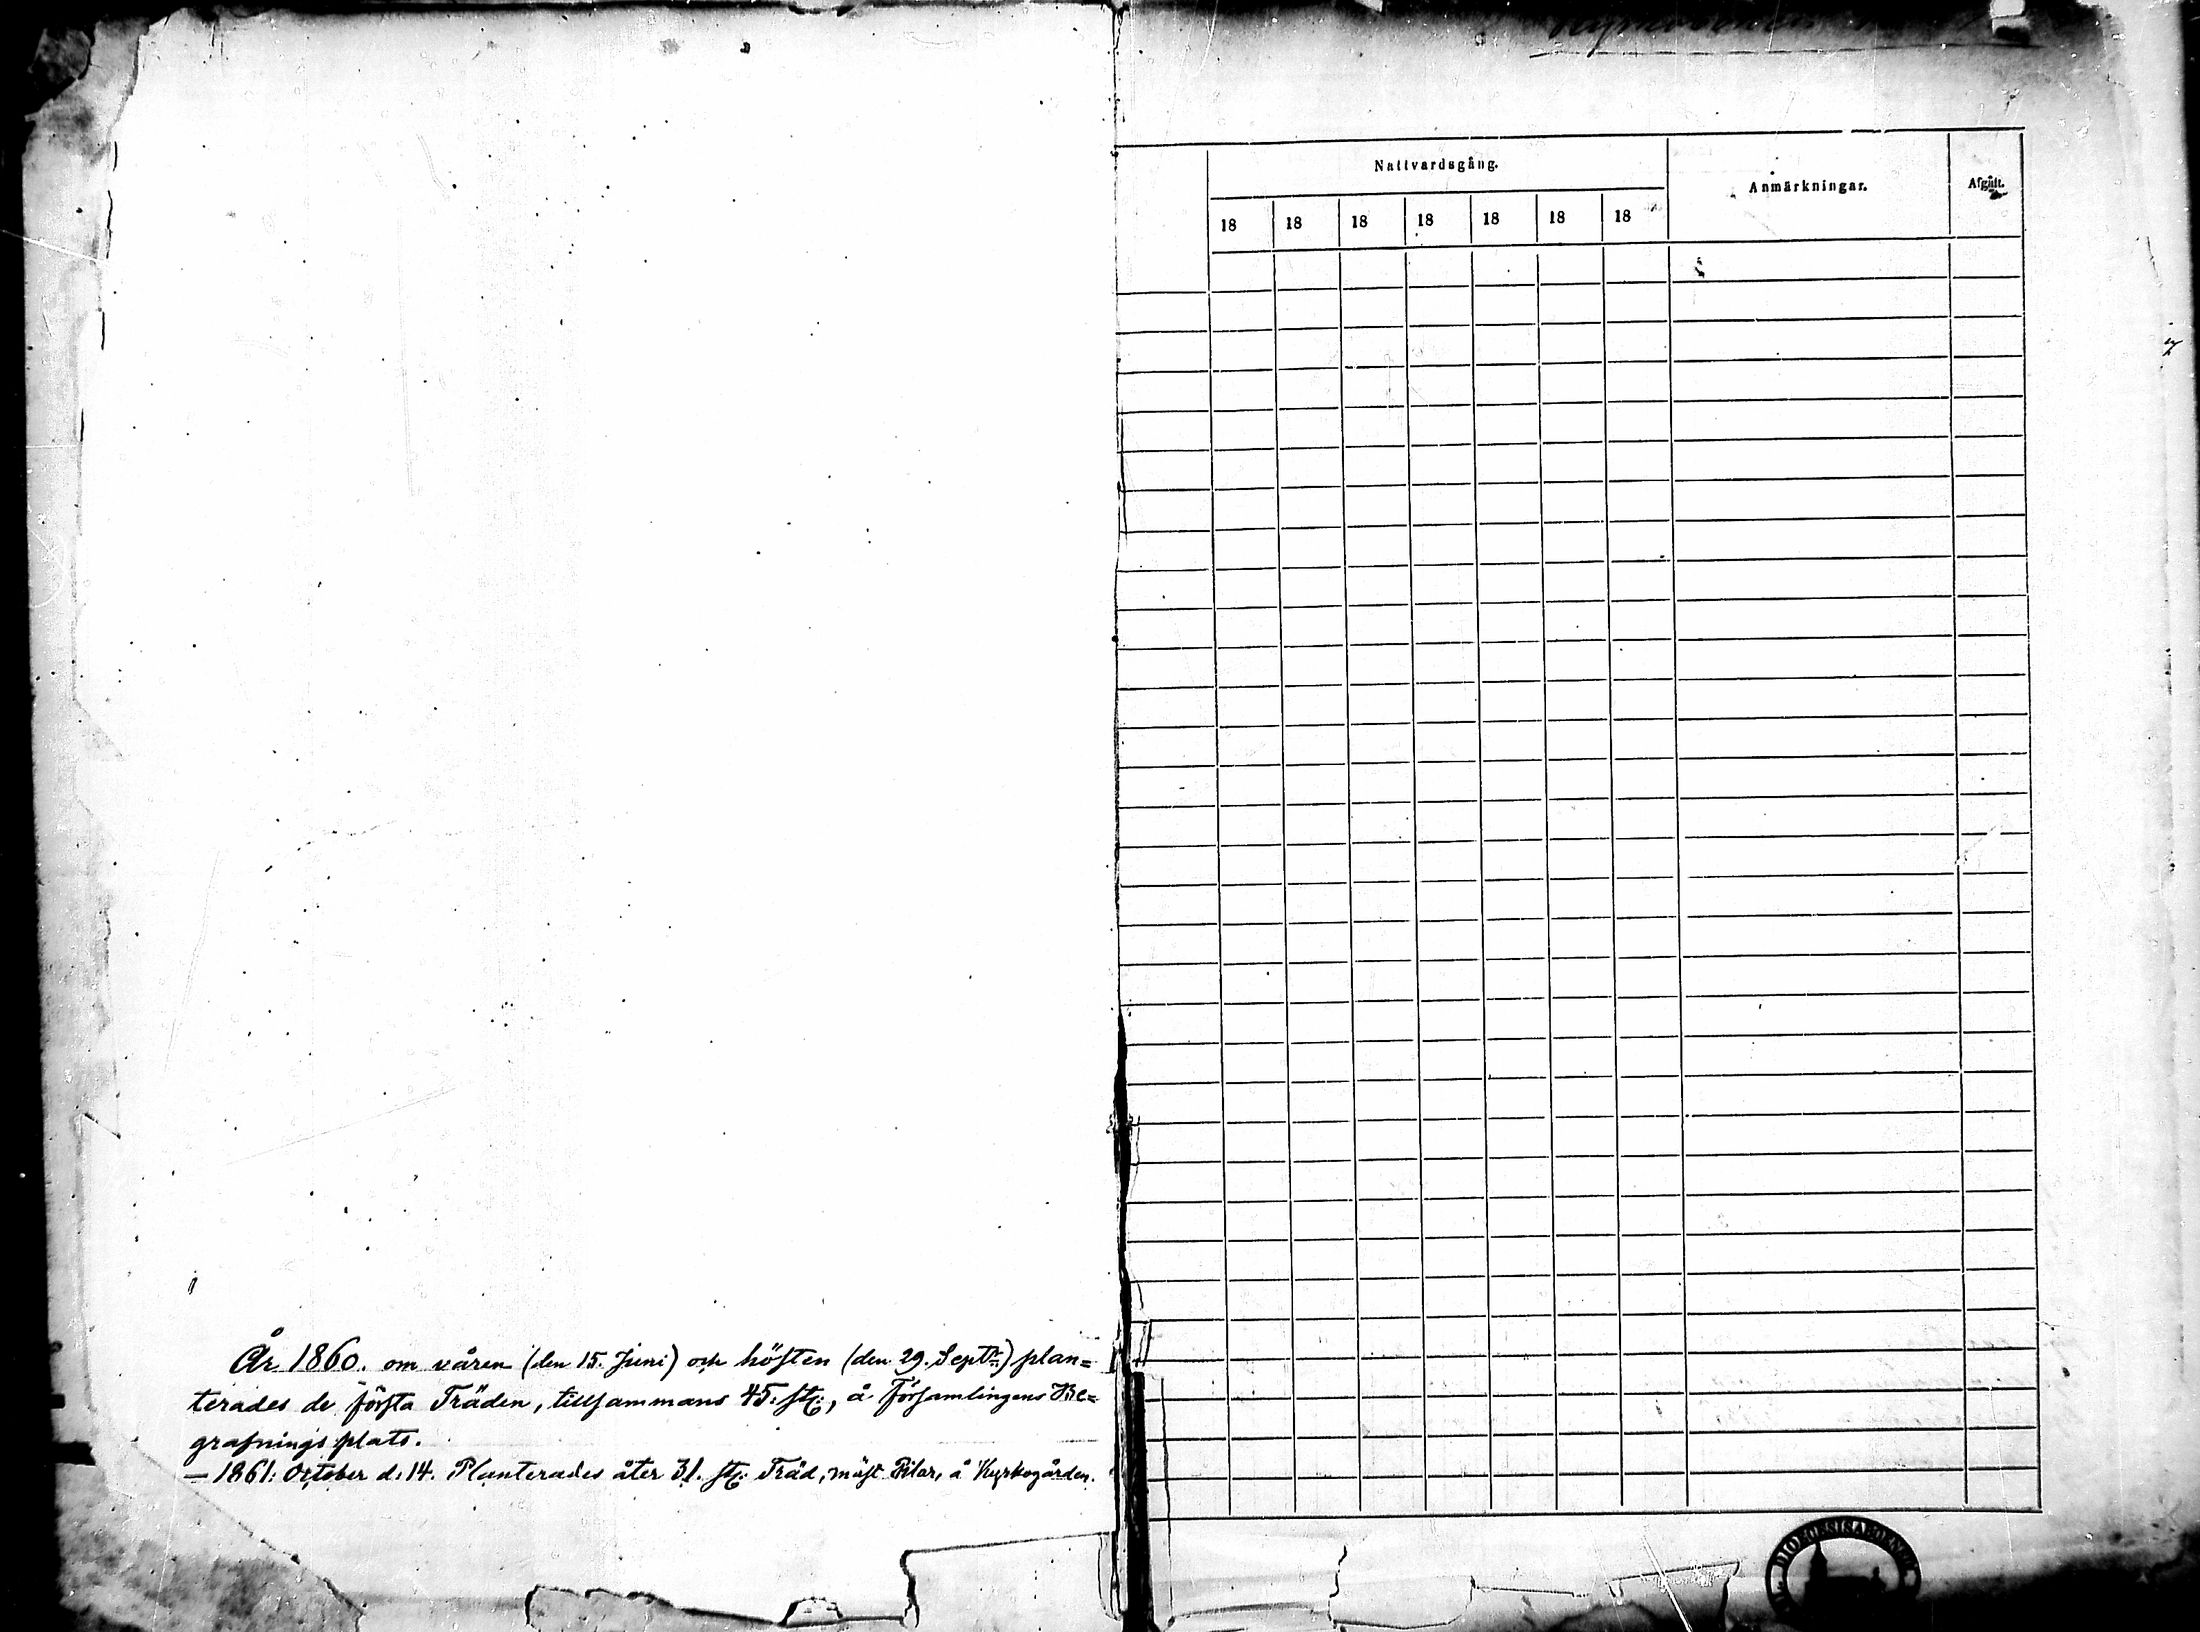 År 1860. om våren (den 15. Juni) och hösten (den 29. Septr) plan=
terades de första Träden, tillsammans 45. st:, å Församlingens Be=
grafnings plats.
— 1861: October d: 14. Planterades åter 31. st: Träd, mäst Pilar, å Kyrkogården.
Nattvardsgång. Anmärkningar. Afgått.
18 18 18 18 18 18 18